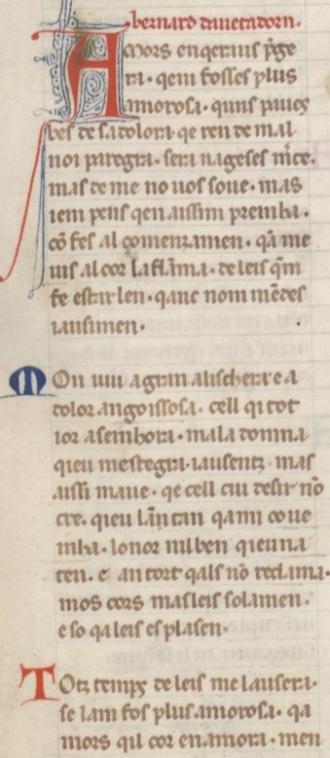 bernard dauetadorn.
Amors enqeraus p̃ge
ra. qem fosses plus
amorosa. quns paucs
bes desadolora. qe ren de mal
noi paregra. sera nageses m̃ce.
mas de me no uos soue. mas
iem pens qen aissim prenha.
cõ fes al comenzamen. qã me
uis al cor la flãma. de leis q̃m
fe estar len. qanc nom mẽdes
iausimen.
Mon uiu a gran aliscberre e a
dolor angoissosa. cell qi tot
ior asembora. mala domna
qieu mestegra. iausentz mas
aissi maue. qe cell cui desir nõ
cre. qieu lãn tan qami coue
nha. lonor nil ben qieu na
ten. e an tort qals nõ reclama.
mos cors mas leis solamen.
e so qa leis es plasen.
Totz temps de leis me lausera.
se iam fos plus amorosa. qa
mors qil cor enamora. men